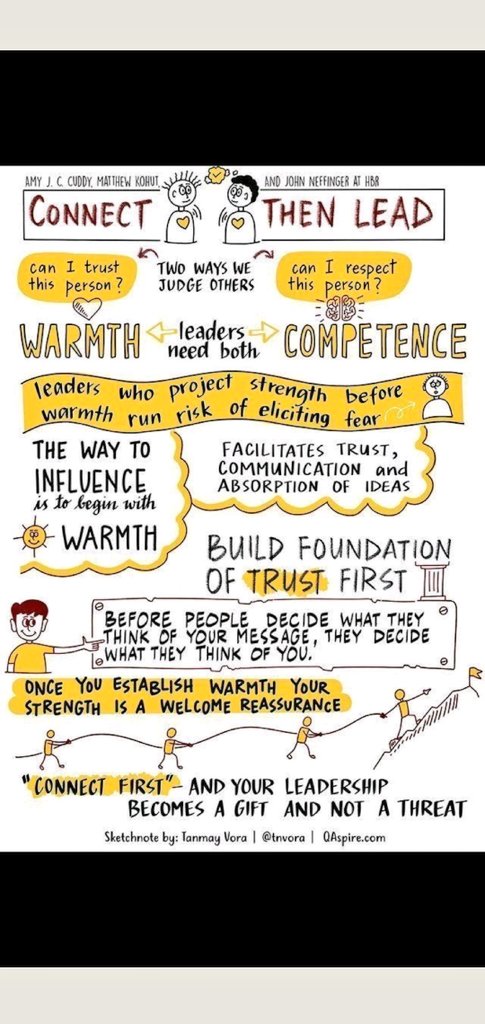 AMY J. C. CUDDY, MATTHEW KOHUT AND JOHN NEFFINGER AT HBR
CONNECT THEN LEAD
can I trust
this person?
TWO WAYS WE
JUDGE OTHERS
can I respect
this person?
WARMTH
leaders
need both
COMPETENCE
leaders who project strength before
warmth run risk of eliciting fear
THE WAY TO
INFLUENCE
is to begin with
WARMTH
FACILITATES TRUST,
COMMUNICATION and
ABSORPTION OF IDEAS
BUILD FOUNDATION
OF TRUST FIRST
BEFORE PEOPLE DECIDE WHAT THEY
THINK OF YOUR MESSAGE, THEY DECIDE
WHAT THEY THINK OF YOU.
ONCE YOU ESTABLISH WARMTH YOUR
STRENGTH IS A WELCOME REASSURANCE
"CONNECT FIRST" - AND YOUR LEADERSHIP
BECOMES A GIFT AND NOT A THREAT
Sketchnote by: Tanmay Vora | @tnvora | QAspire.com